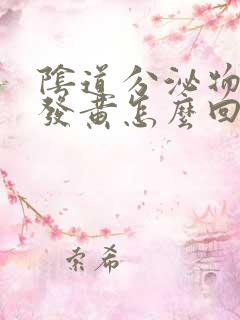 陰道分泌物
發黃怎麼回
索希